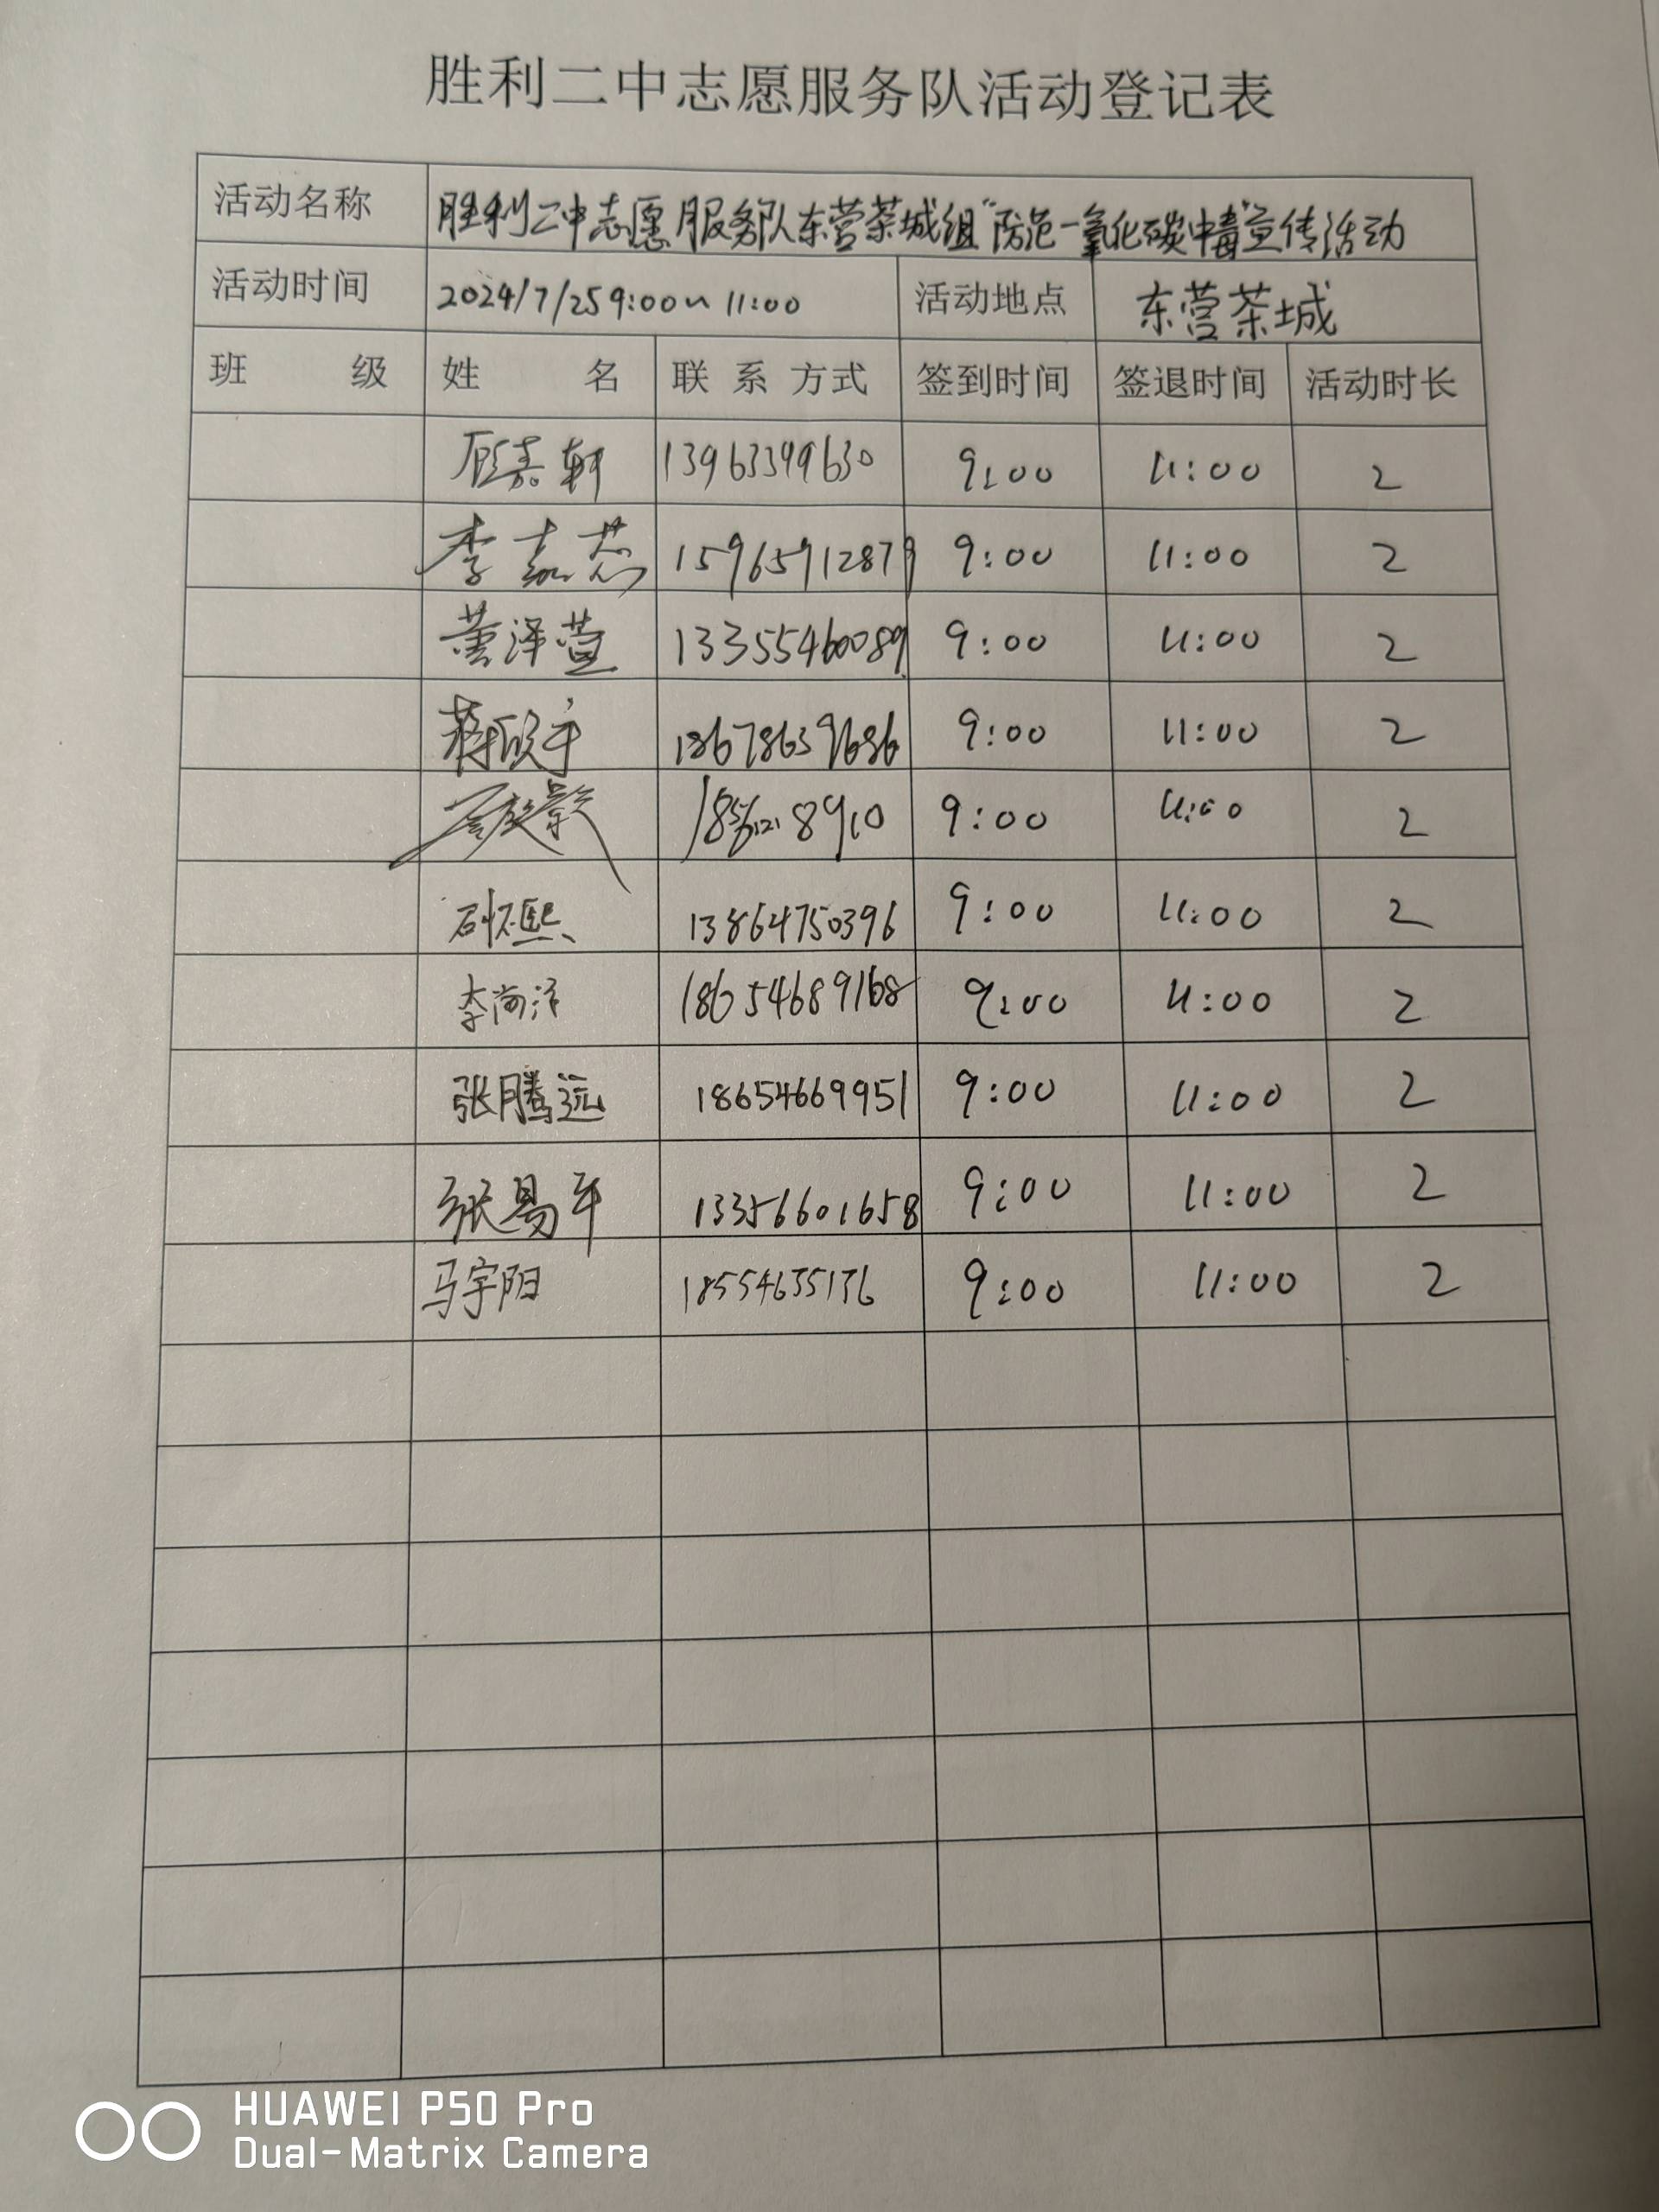 胜利二中志愿服务队活动登记表
活动名称 胜利二中志愿服务队东营茶城组“防范一氧化碳中毒”宣传活动
活动时间 2024/7/25 9:00~11:00 活动地点 东营茶城
班 级 姓 名 联系方式 签到时间 签退时间 活动时长
顾嘉轩 13963399630 9:00 11:00 2
李嘉芯 15965912879 9:00 11:00 2
董泽萱 13355460089 9:00 11:00 2
蒋欣宇 18678639686 9:00 11:00 2
9:00 11:00 2
13864750396 9:00 11:00 2
李尚洋 18654689168 9:00 11:00 2
张腾远 18654669951 9:00 11:00 2
张易年 13356601658 9:00 11:00 2
马宇阳 18554635136 9:00 11:00 2
HUAWEI P50 Pro
Dual-Matrix Camera